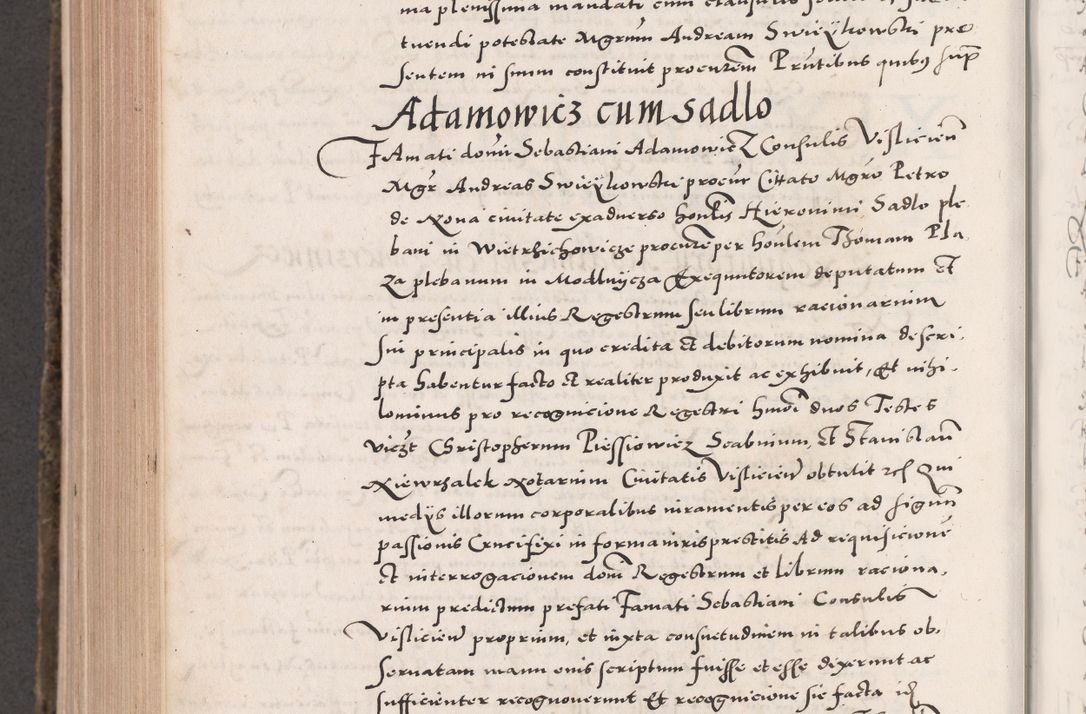 ma plenissima mandati cum clausulis
tuendi potestate Mgrum Andream Swieÿkowski pre
sentem in suum constituit procurem Prntibus quibus supra
Adamowicz cum Sadlo
FAmati domi Sebastiani Adamowicz Consulis Vislicien
Mgr Andreas Swieÿkowski procur Cittato Mgro Petro
de Nova civitate ex adverso honlis Hieronimi Sadlo ple
bani in Wietrzichowicze procurem per honlem Thomam Pla
za plebanum in Modlnycza Exequutorem deputatum Et
in presentia illius Regestrum seu librum racionarium
sui principalis in quo credita et debitorum nomina descri
pta habentur facto et realiter produxit ac exhibuit, Et nihi
lominus pro recognicione Regestri hmoi duos Testes
viczt Christopherum Piessiowicz Scabinum, Et Stanislaum
Niewrzalek Notarium Civitatis Visliciens obtulit Qui
medys illorum corporalibus iuramentis per eos ad signum
passionis Crucifixi in forma iuris prestitis Ad requisicione
Et interrogacionem dom Regestrum et librum raciona
rium predictum prefati Famati Sebastiani Consulis
Visliciens proprium, et iuxta consuetudinem in talibus ob
servatam manu eius scriptum fuisse et esse dixerunt ac
sufficienter recognoverunt Et recognicione sic facta